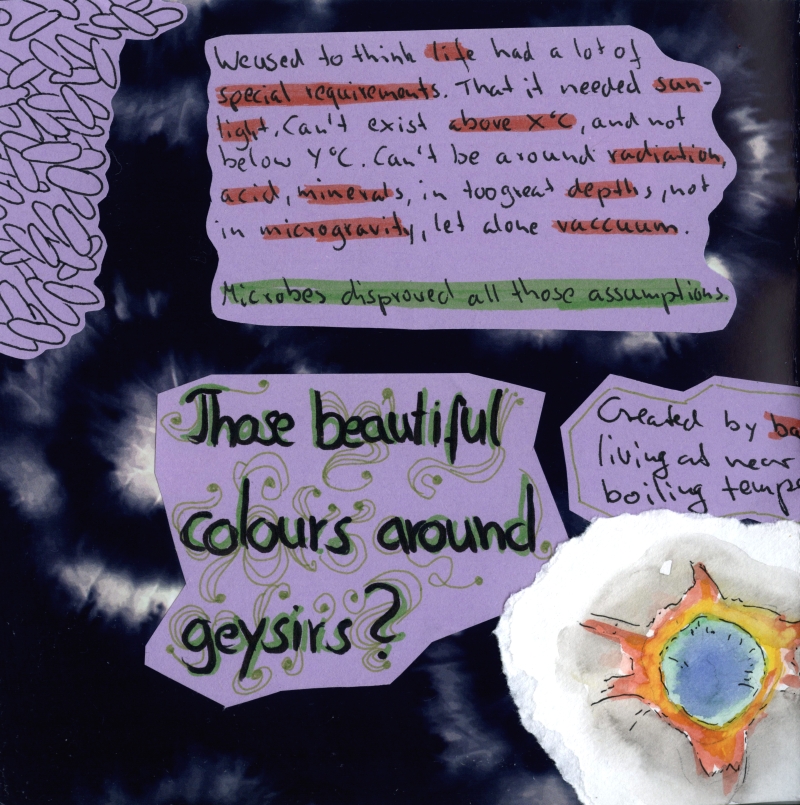 We used to think life had a lot of
special requirements. That it needed sun-
light. Can't exist above X°C, and not
below Y°C. Can't be around radiation,
acid, minerals, in too great depths, not
in microgravity, let alone vaccuum.
Microbes disproved all those assumptions.
Those beautiful
colours around
geysirs?
Created by ba
living at near
boiling tempe